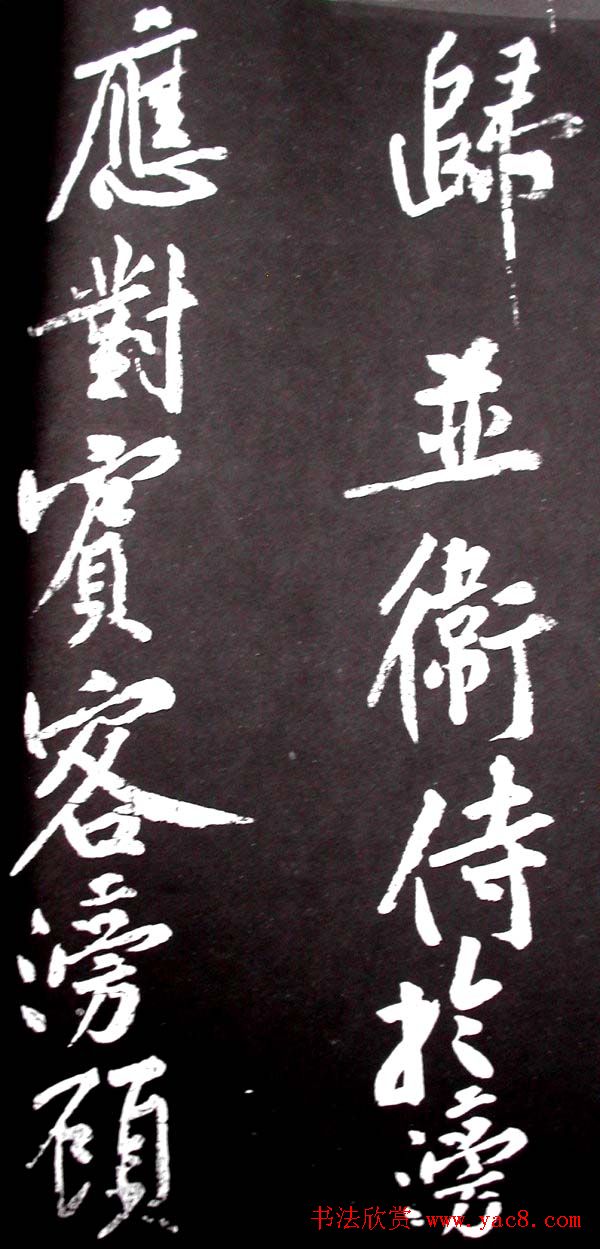 歸並衛侍於滂
應對賓客滂顧
书法欣赏 www.yac8.com